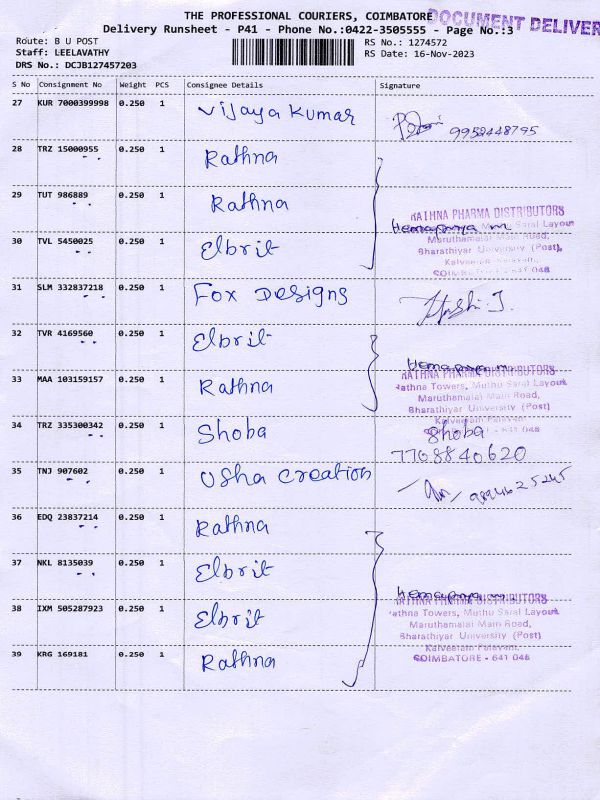 THE PROFESSIONAL COURIERS, COIMBATORE
DOCUMENT DELIVER
Delivery Runsheet - P41 - Phone No.:0422-3505555 - Page No.:3
Route: B U POST
RS No.: 1274572
Staff: LEELAVATHY
RS Date: 16-Nov-2023
DRS No.: DCJB127457203
S No Consignment No Weight PCS Consignee Details Signature
27 KUR 7000399998 0.250 1 Vijaya Kumar 9952448795
28 TRZ 15000955 0.250 1 Rathna
29 TUT 986889 0.250 1 Rathna
RATHNA PHARMA DISTRIBUTORS
Hemapriya m Muthu Saral Layout
Maruthamalai Main Road,
30 TVL 5450025 0.250 1 Elbrit
Bharathiyar University (Post),
Kalveeram Palayam,
COIMBATORE - 641 046
31 SLM 332837218 0.250 1 Fox Designs
32 TVR 4169560 0.250 1 Elbrit
Hemapriya m
RATHNA PHARMA DISTRIBUTORS
33 MAA 103159157 0.250 1 Rathna
Rathna Towers, Muthu Saral Layout
Maruthamalai Main Road,
Bharathiyar University (Post)
Kalveeram Palayam,
34 TRZ 335300342 0.250 1 Shoba Shoba
- 641 046
7708840620
35 TNJ 907602 0.250 1 Usha Creation
36 EDQ 23837214 0.250 1 Rathna
37 NKL 8135039 0.250 1 Elbrit
Hemapriya m
RATHNA PHARMA DISTRIBUTORS
38 IXM 505287923 0.250 1 Elbrit
athna Towers, Muthu Saral Layout
Maruthamalai Main Road,
Bharathiyar University (Post)
Kalveeram Palayam,
39 KRG 169181 0.250 1 Rathna
COIMBATORE - 641 046